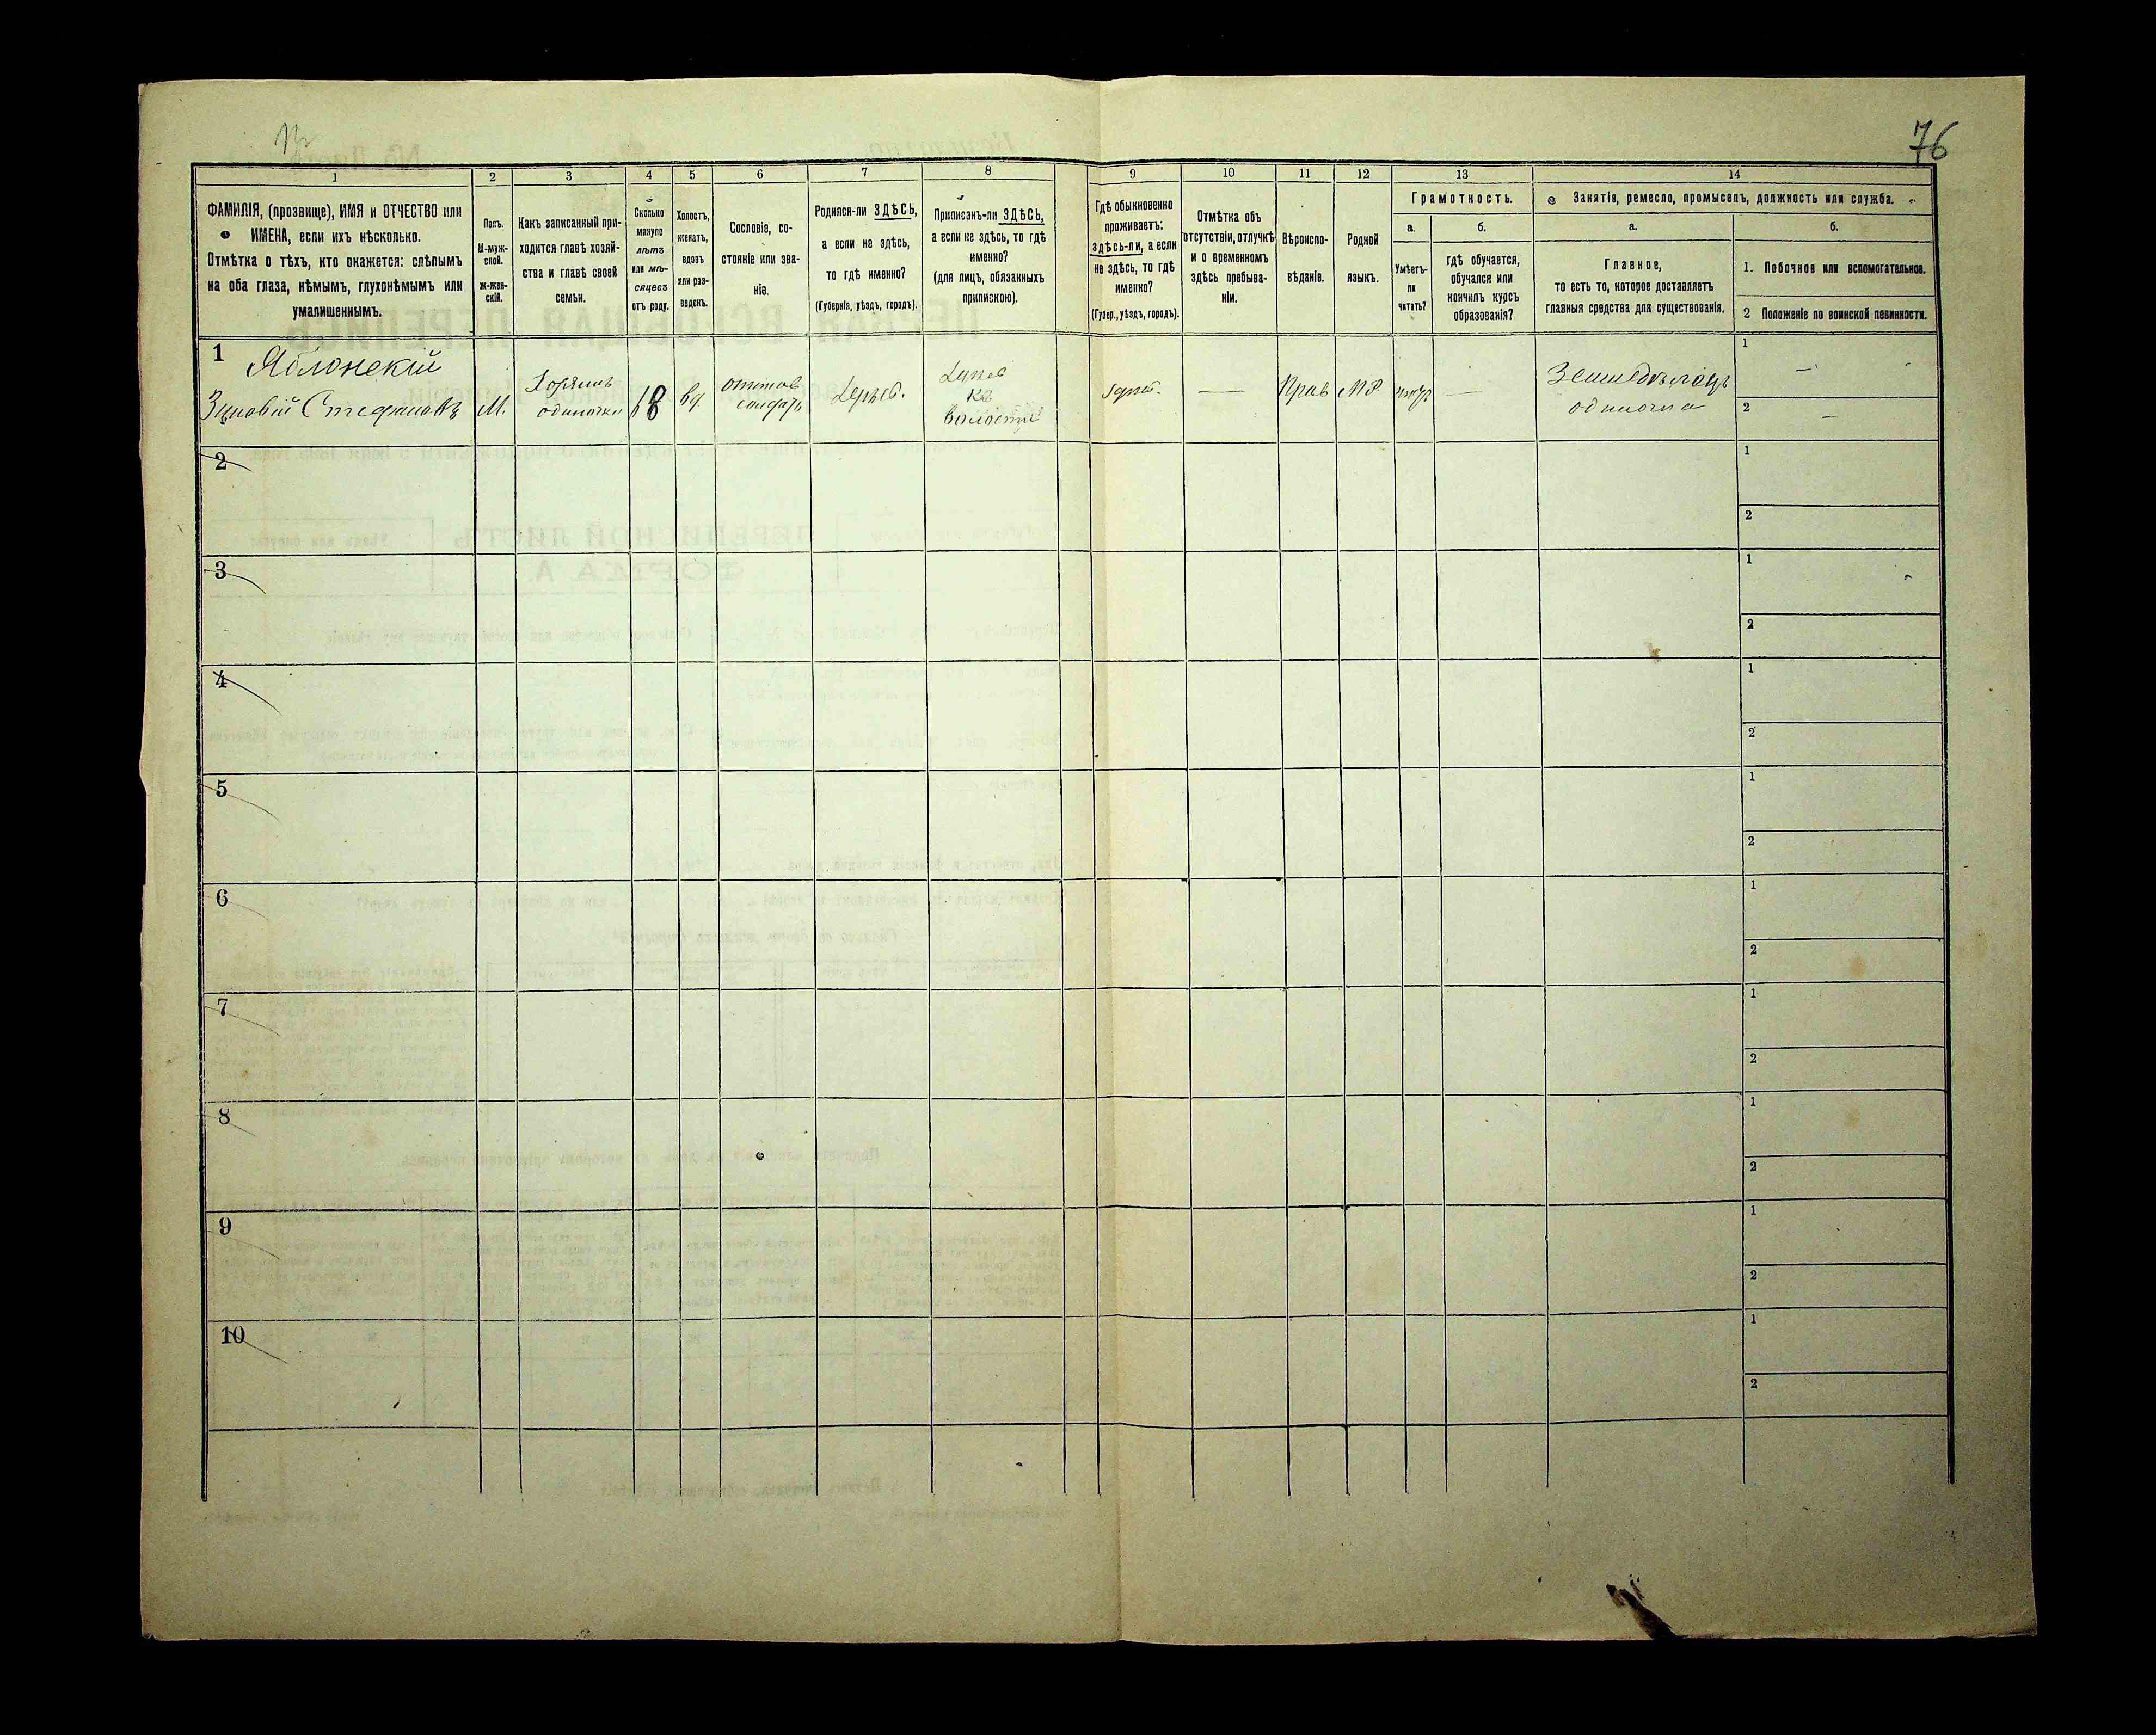 76
1
2
3
4
5
6
7
8
9
10
11
12
13
14
ФАМИЛІЯ, (прозвище), ИМЯ и ОТЧЕСТВО или
ИМЕНА, если ихъ нѣсколько.
Отмѣтка о тѣхъ, кто окажется: слѣпымъ
на оба глаза, нѣмымъ, глухонѣмымъ или
умалишеннымъ.
Полъ.
М-муж-
ской.
ж-жен-
скій.
Какъ записанный при-
ходится главѣ хозяй-
ства и главѣ своей
семьи.
Сколько
минуло
лѣтъ
или мѣ-
сяцевъ
отъ роду.
Холостъ,
женатъ,
вдовъ
или раз-
веденъ.
Сословіе, со-
стояніе или зва-
ніе.
Родился-ли ЗДѢСЬ,
а если не здѣсь,
то гдѣ именно?
(Губернія, уѣздъ, городъ).
Приписанъ-ли ЗДѢСЬ,
а если не здѣсь, то гдѣ
именно?
(для лицъ, обязанныхъ
припискою).
Гдѣ обыкновенно
проживаетъ:
здѣсь-ли, а если
не здѣсь, то гдѣ
именно?
(Губер., уѣздъ, городъ).
Отмѣтка объ
отсутствіи, отлучкѣ
и о временномъ
здѣсь пребыва-
ніи.
Вѣроиспо-
вѣданіе.
Родной
языкъ.
Грамотность.
а.
Умѣетъ-
ли
читать?
б.
гдѣ обучается,
обучался или
кончилъ курсъ
образованія?
Занятія, ремесло, промыселъ, должность или служба.
а.
Главное,
то есть то, которое доставляетъ
главныя средства для существованія.
б.
1. Побочное или вспомогательное.
2 Положеніе по воинской повинности.
1
Яблонскій
Зиновій Стефановъ
М.
одиночка
68
вд
Прав
МР
Земледѣлецъ
одиночка
1 —
2 —
2
1
2
3
1
2
4
1
2
5
1
2
6
1
2
7
1
2
8
1
2
9
1
2
10
1
2